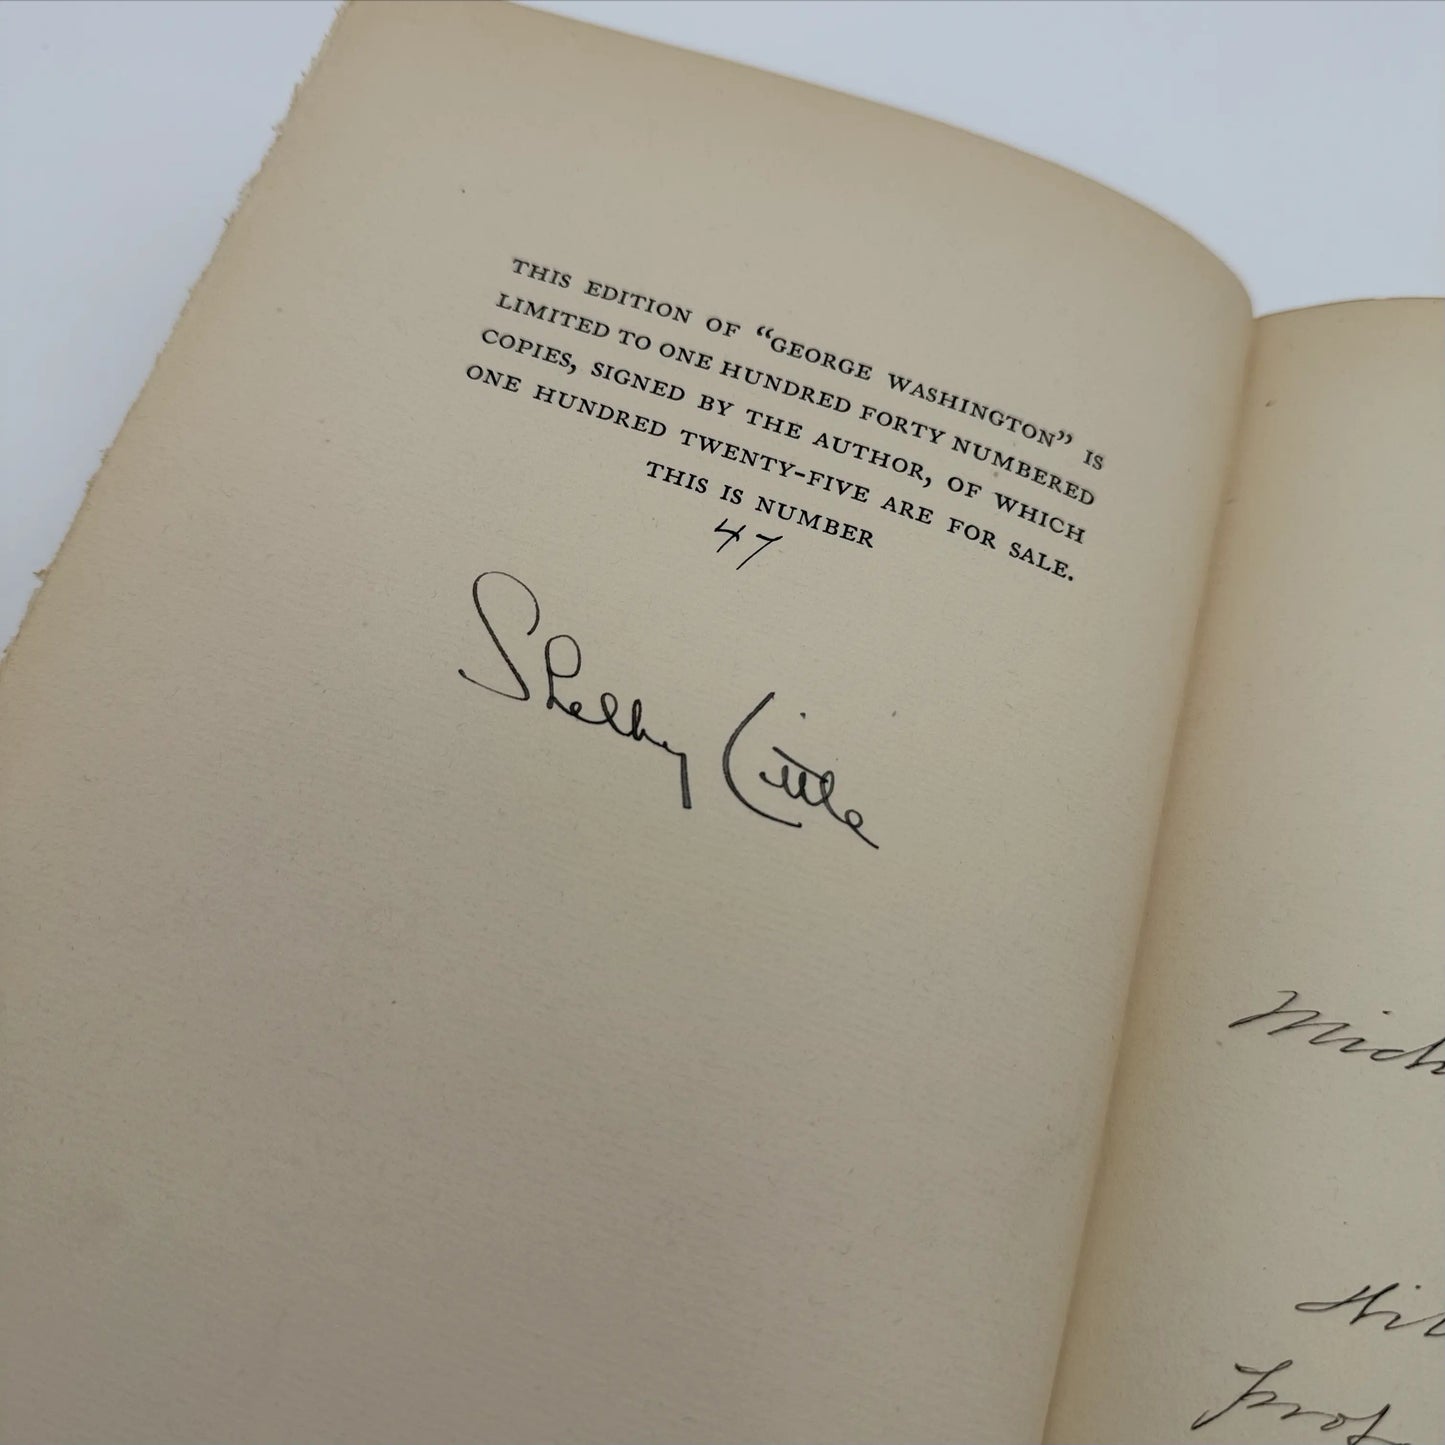 THIS EDITION OF “GEORGE WASHINGTON” IS
LIMITED TO ONE HUNDRED FORTY NUMBERED
COPIES, SIGNED BY THE AUTHOR, OF WHICH
ONE HUNDRED TWENTY-FIVE ARE FOR SALE.
THIS IS NUMBER
47
Shelby Little